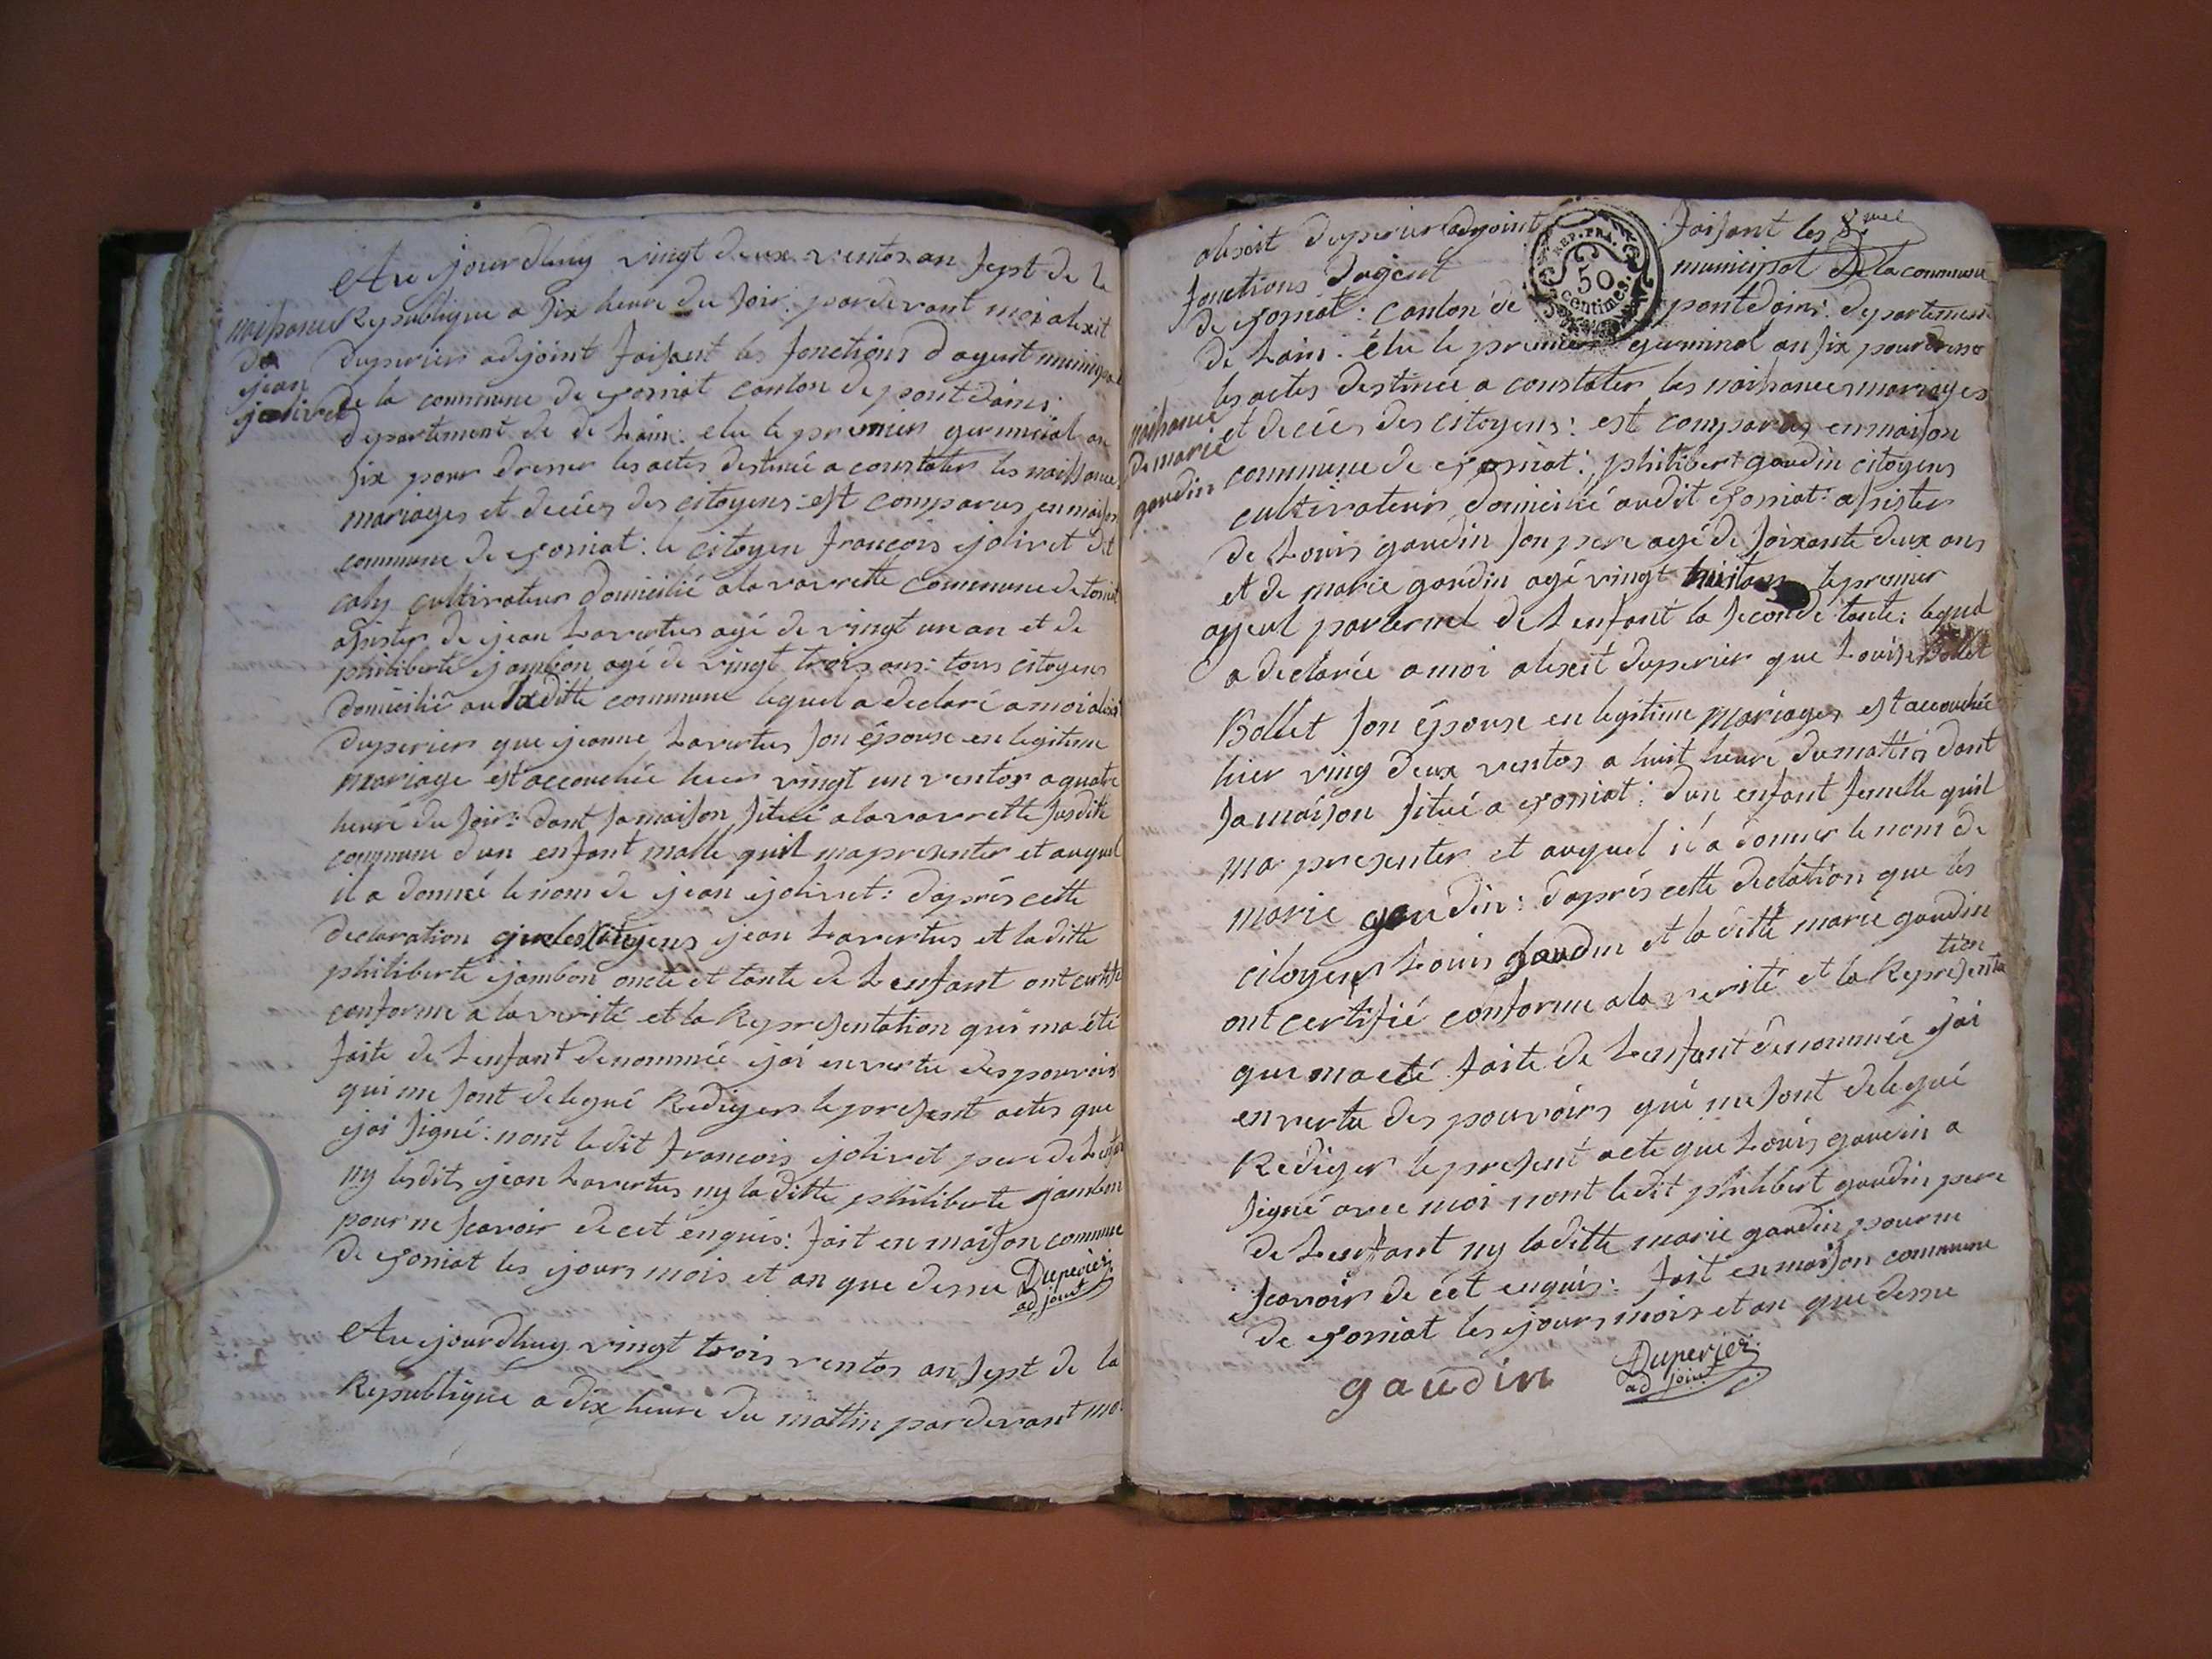 Au ejourdhuy vingt deux ventos an sept de la
Republique a six heure du soir: pardevant moi alexit
naissance
de
jean
jolivet
duperier adjoint faisant les fonctions dagent municipal
de la commune de cormat canton de pont dains
departement de de Lain: elu le premier germinal an
six pour dresser les actes destinée a constater les naissances
mariages et deciés des citoyens: est comparus en maison
commune de cormat: le citoyen francois ejolivet dit
caly cultivateur domicilié a lavavrette commune de
assister de ejean Lavertus agé de vingt un an et de
philiberte ejambon agé de vingt trois ans: tous citoyens
domicilié au laditte commune lequel a declaré a moi alexit
duperier que ejeanne Lavertus son épouse en legitime
mariage est accouchée hier vingt un ventos a quatre
heure du soir: dant sa maison situé a lavavrette susditte
commune dun enfant malle quil ma presenter et auquel
il a donnée le nom de ejean ejolivet: daprés cette
declaration que les citoyens ejean Lavertus et laditte
philiberte ejambon oncle et tante de Lenfant ont certifié
conforme a la verité et la Representation qui ma été
faite de Lenfant denommée ejai en vertu des pouvoirs
qui me sont delegué Rediger le present actes que
ejai signé: nont ledit francois ejolivet pere de Lenfant
ny lesdits ejean Lavertus ny laditte philiberte jambon
pour ne scavoir de cet enquis: fait en maison commune
de cormat les ejours mois et an que dessu Duperier
adjoint
Au ejourdhuy vingt trois ventos an sept de la
Republique a dix heure du mattin pardevant moi
alexit duperier adjoint faisant les
REP. FRA.
50
centimes
fonctions dagent municipal de la commune
de cormat: canton de pont dains: departement
de Lain: élu le premier germinal an six pour dresser
les actes destinée a constater les naissances mariages
naissance
de marie
gaudin
et deciés des citoyens: est comparus en maison
commune de cormat: philibert gaudin citoyens
cultivateur domicilié audit cormat: assister
de Louis gaudin son pere agé de soixante deux ans
et de marie gaudin agé vingt huit ans le premier
ayeul parternel de Lenfant la seconde tante: lequel
a declarée a moi alexit duperier que Louise Bollet
Bollet son épouse en legitime mariages est accouchée
hier ving deux ventos a huit heure du mattin dant
sa maison situé a cormat: dun enfant femelle quil
ma presenter et auquel il a donner le nom de
marie gaudin: daprés cette declation que les
citoyens Louis gaudin et la ditte marie gaudin
ont certifié conforme a la verité et la Representation
qui ma eté faite de Lenfant denommée ejai
en vertu des pouvoirs qui me sont delegué
Rediger le present acte que Louis gaudin a
signé avec moi nont ledit philibert gaudin pere
de Lenfant ny laditte marie gaudin pour ne
scavoir de cét enquis: fait en maison commune
de cormat les ejours mois et an que dessu
gaudin Duperier
adjoint